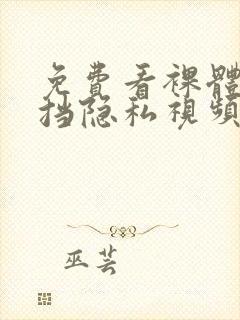 免費看裸體
挡隐私視頻
巫芸